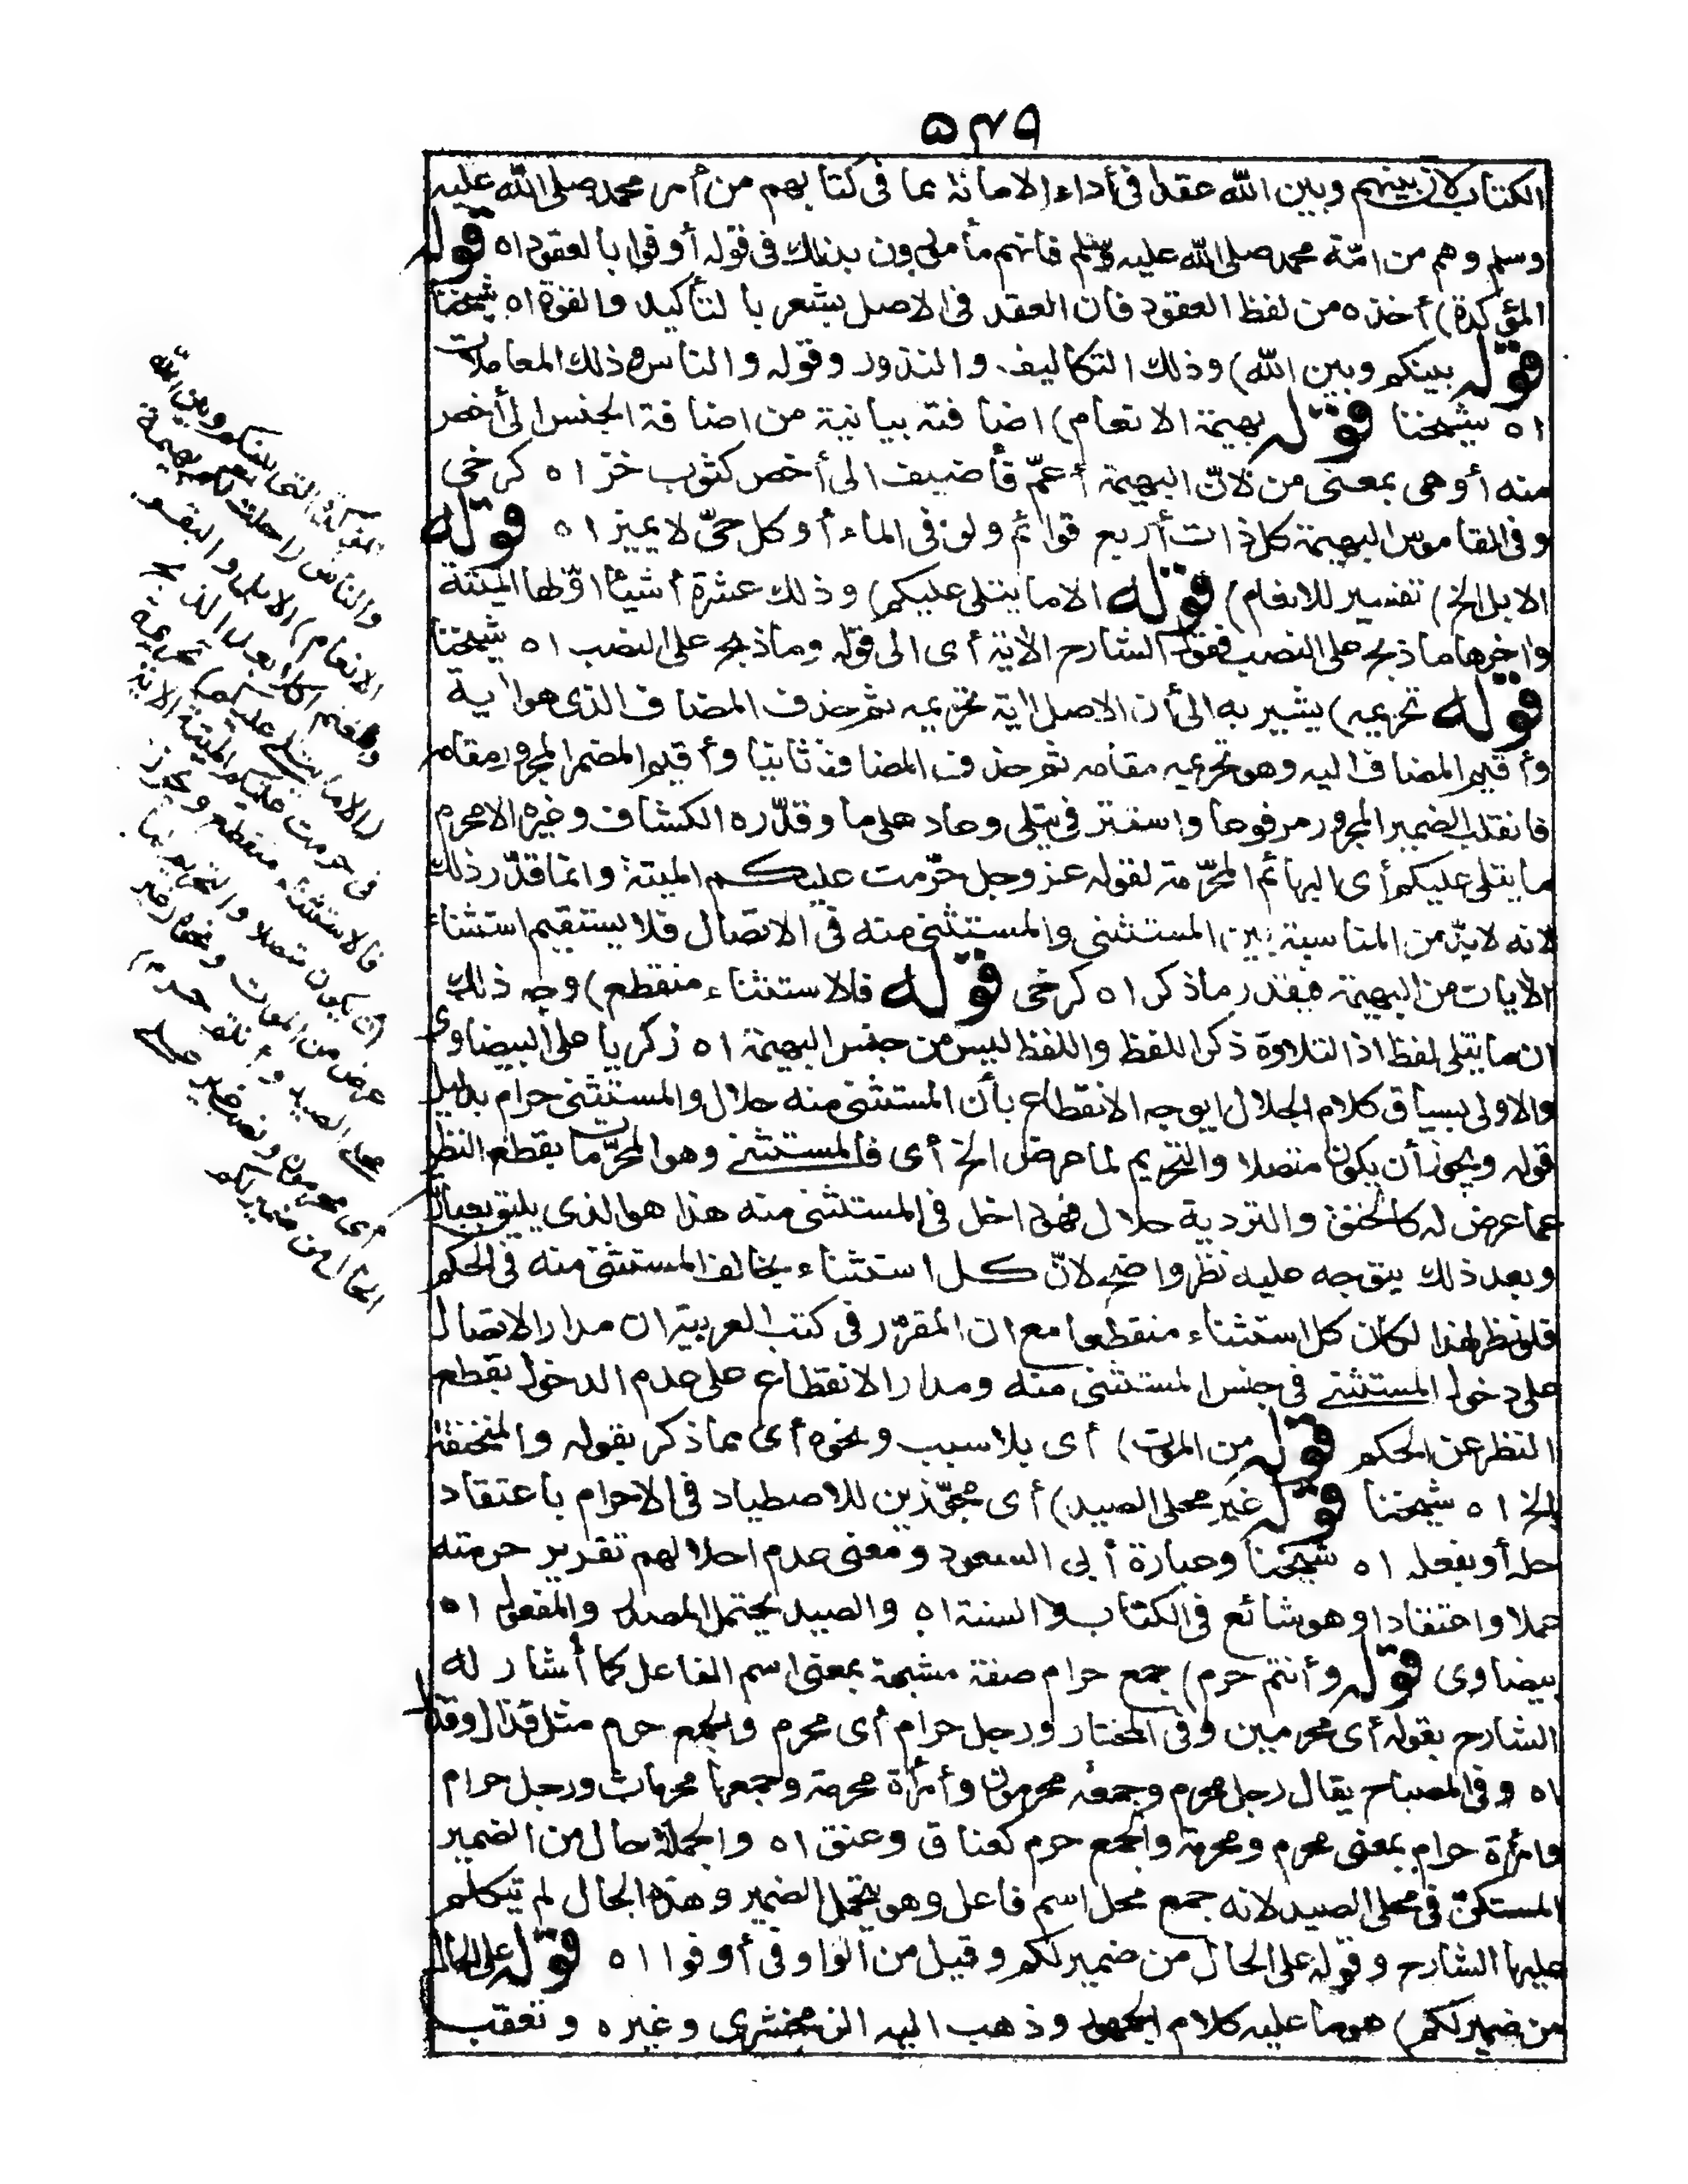 ٥٤٩
الكتاب لان بينهم وبين الله عقدا فى أداء الامانة بما فى كتابهم من أمر محمد صلى الله عليه
وسلم وهم من امّة محمد صلى الله عليه وسلم فانهم مأمورون بذلك فى قوله أوفوا بالعقود اه قوله
المؤكدة) أخذه من لفظ العقود فان العقد فى الاصل يشعر بالتأكيد والقوة اه شيخنا
قوله بينكم وبين الله) وذلك التكاليف والنذور وقوله والناس وذلك المعاملات
اه شيخنا قوله بهيمة الانعام) اضافته بيانية من اضافة الجنس الى أخص
منه أو هى بمعنى من لانّ البهيمة أعمّ فأضيف الى أخص كثوب خز اه كرخى
وفى القاموس البهيمة كل ذات أربع قوائم ولو فى الماء أو كل حىّ لا يميز اه قوله
الابل الخ) تفسير للانعام) قوله الا ما يتلى عليكم) وذلك عشرة أشياء اوّلها الميتة
واخرها ما ذبح على النصب فقول الشارح الأية أى الى قوله وما ذبح على النصب اه شيخنا
قوله تحريمه) يشير به الى أن الاصل أية تحريمه ثم حذف المضاف الذى هو أية
وأقيم المضاف اليه وهو تحريمه مقامه ثم حذف المضاف ثانيا وأقيم المضمر المجرور مقامه
فانقلب الضمير المجرور مرفوعا واستتر فى يتلى وعاد على ما وقدّره الكشاف وغيره الا محرم
ما يتلى عليكم أى البهائم المحرّمة لقوله عز وجل حرّمت عليكم الميتة وانما قدّر ذلك
لانه لابدّ من المناسبة بين المستثنى والمستثنى منه فى الاتصال فلا يستقيم استثناء
الأيات من البهيمة فيقدر ما ذكر اه كرخى قوله فالاستثناء منقطع) وجه ذلك
ان ما يتلى لفظ اذ التلاوة ذكر اللفظ واللفظ ليس من جنس البهيمة اه زكريا على البيضاوى
والاولى بسياق كلام الجلال ان يوجه الانقطاع بأن المستثنى منه حلال والمستثنى حرام بدليل
قوله ويجوز أن يكون متصلا والتحريم لما عرض الخ أى فالمستثنى وهو المحرّمات بقطع النظر
عما عرض له كالخنق والتردية حلال فهو داخل فى المستثنى منه هذا هو الذى يليق بعبارته
وبعد ذلك يتوجه عليه نظر واضح لانّ كل استثناء يخالف المستثنى منه فى الحكم
فلو نظر لهذا لكان كل استثناء منقطعا مع ان المقرّر فى كتب العربية ان مدار الاتصال
على دخول المستثنى فى جنس المستثنى منه ومدار الانقطاع على عدم الدخول بقطع
النظر عن الحكم قوله من الموت) أى بلا سبب ونحوه أى مما ذكر بقوله والمنخنقة
الخ اه شيخنا قوله غير محلى الصيد) أى مجوّزين للاصطياد فى الاحرام باعتقاد
حله أو بفعله اه شيخنا وعبارة أبى السعود ومعنى عدم احلالهم تقرير حرمته
عملا واعتقادا وهو شائع فى الكتاب والسنة اه والصيد يحتمل المصدر والمفعول اه
بيضاوى قوله وأنتم حرم) جمع حرام صفة مشبهة بمعنى اسم الفاعل كما أشار له
الشارح بقوله أى محرمين وفى المختار ورجل حرام أى محرم والجمع حرم مثل قذال وقذل
اه وفى المصباح يقال رجل محرم وجمعه محرمون وأمرأة محرمة وجمعها محرمات ورجل حرام
وامرأة حرام بمعنى محرم ومحرمة والجمع حرم كعناق وعنق اه والجملة حال من الضمير
المستكنّ فى محلى الصيد لانه جمع محل اسم فاعل وهو يتحمل الضمير وهذه الحال لم يتكلم
عليها الشارح وقوله على الحال من ضمير لكم وقيل من الواو فى أوفوا اه قوله على الحال
من ضمير لكم) هو ما عليه كلام الجمهور وذهب اليه الزمخشرى وغيره وتعقب
المؤكدة التى بينكم وبين الله
والناس (احلت لكم بهيمة
الانعام) الابل والبقر
والغنم اكلا بعد الذبح
(الا ما يتلى عليكم) تحريمه
فى حرمت عليكم الميتة الاية
فالاستثناء منقطع ويجوز
أن يكون متصلا والتحريم لما
عرض من الموت ونحوه (غير
محلى الصيد وانتم حرم)
أى محرمون ونصب غير على
الحال من ضمير لكم